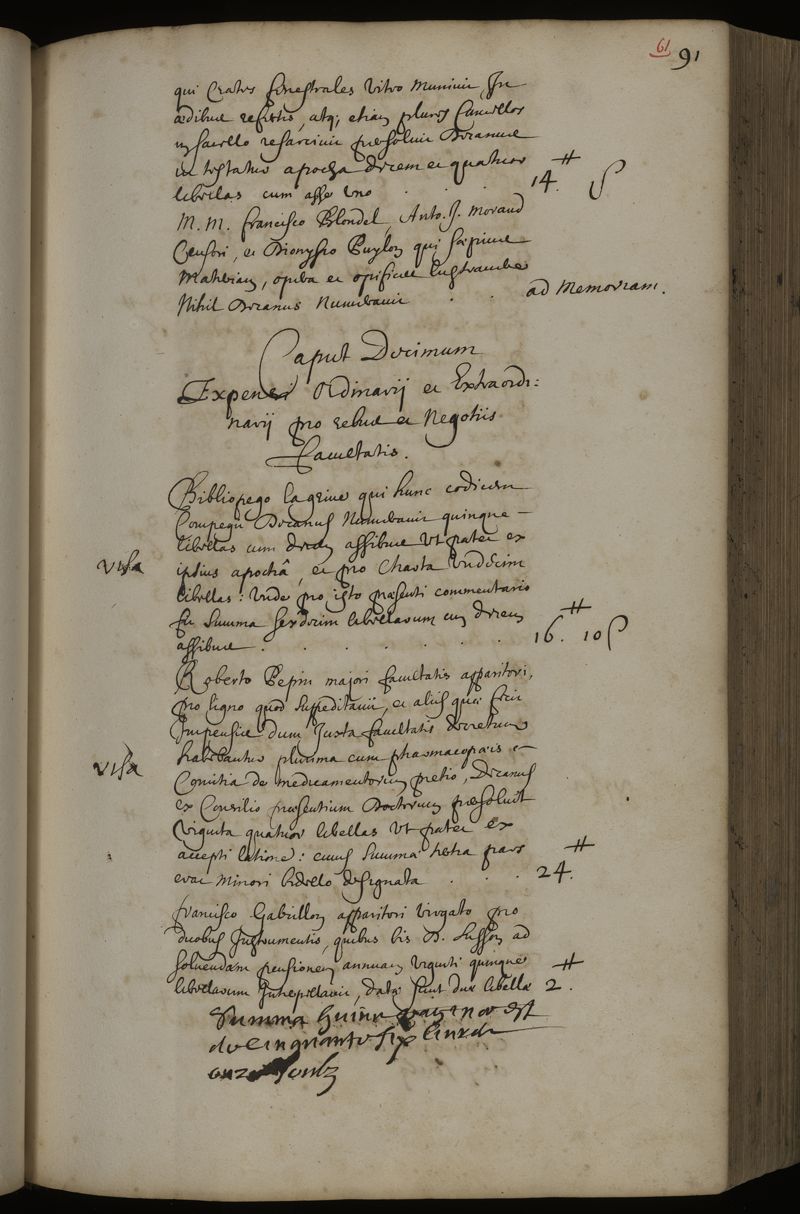 61 91
qui Crates fenestrales vitro munivit, In
ædibus refertis, atq; etiam plures Cancellos
in sacello resarcivit præsolvit Decanus
ut testatur apocha decem et quatuor
libellas cum asse uno . . . . 14 ₶ 1 s
M. M. francisco Blondel, Anto. J. Morand
Censori, et Dionysio Puylon qui sæpius
Mathiam, opera et opificia lustrantibus
Nihil Decanus Numeravit . . ad Memoriam.
Caput Decimum
Expensi Ordinarij et Extraordi:
narij pro rebus et Negotiis
facultatis.
Bibliopego Lagrive qui hunc codicem
Compegit Decanus Numeravit quinque
libellas cum decem assibus ut patet ex
visa ipsius apochâ, et pro Charta undecim
libellas: unde pro isto præsenti commentario
In Summa sexdecim libellarum cum decem
assibus . . . . . . 16 ₶ . 10 s
Roberto Pepin majori facultatis apparitori,
pro ligno quod suppeditavit, et aliis quas fecit
Impensis dum Juxta facultatis decretum
habebantur plurima cum pharmacopœis
visa Comitia de medicamentorum pretio, Decanus
ex Consilio præsentium Doctorum præsolvit
viginta quatuor libellas ut patet ex
accepti latione: cuius summa tertia pars
erat minori libello designata . . . 24 ₶.
francisco Gabillon apparitori virgato pro
duobus Instrumentis, quibus bis D. Susson ad
solvendam pensionem annuam viginti quinque
libellarum Interpellavit, datæ sunt duæ libellæ 2 ₶.
Summa huius paginæ est
de cinquante six livres
onze soulz